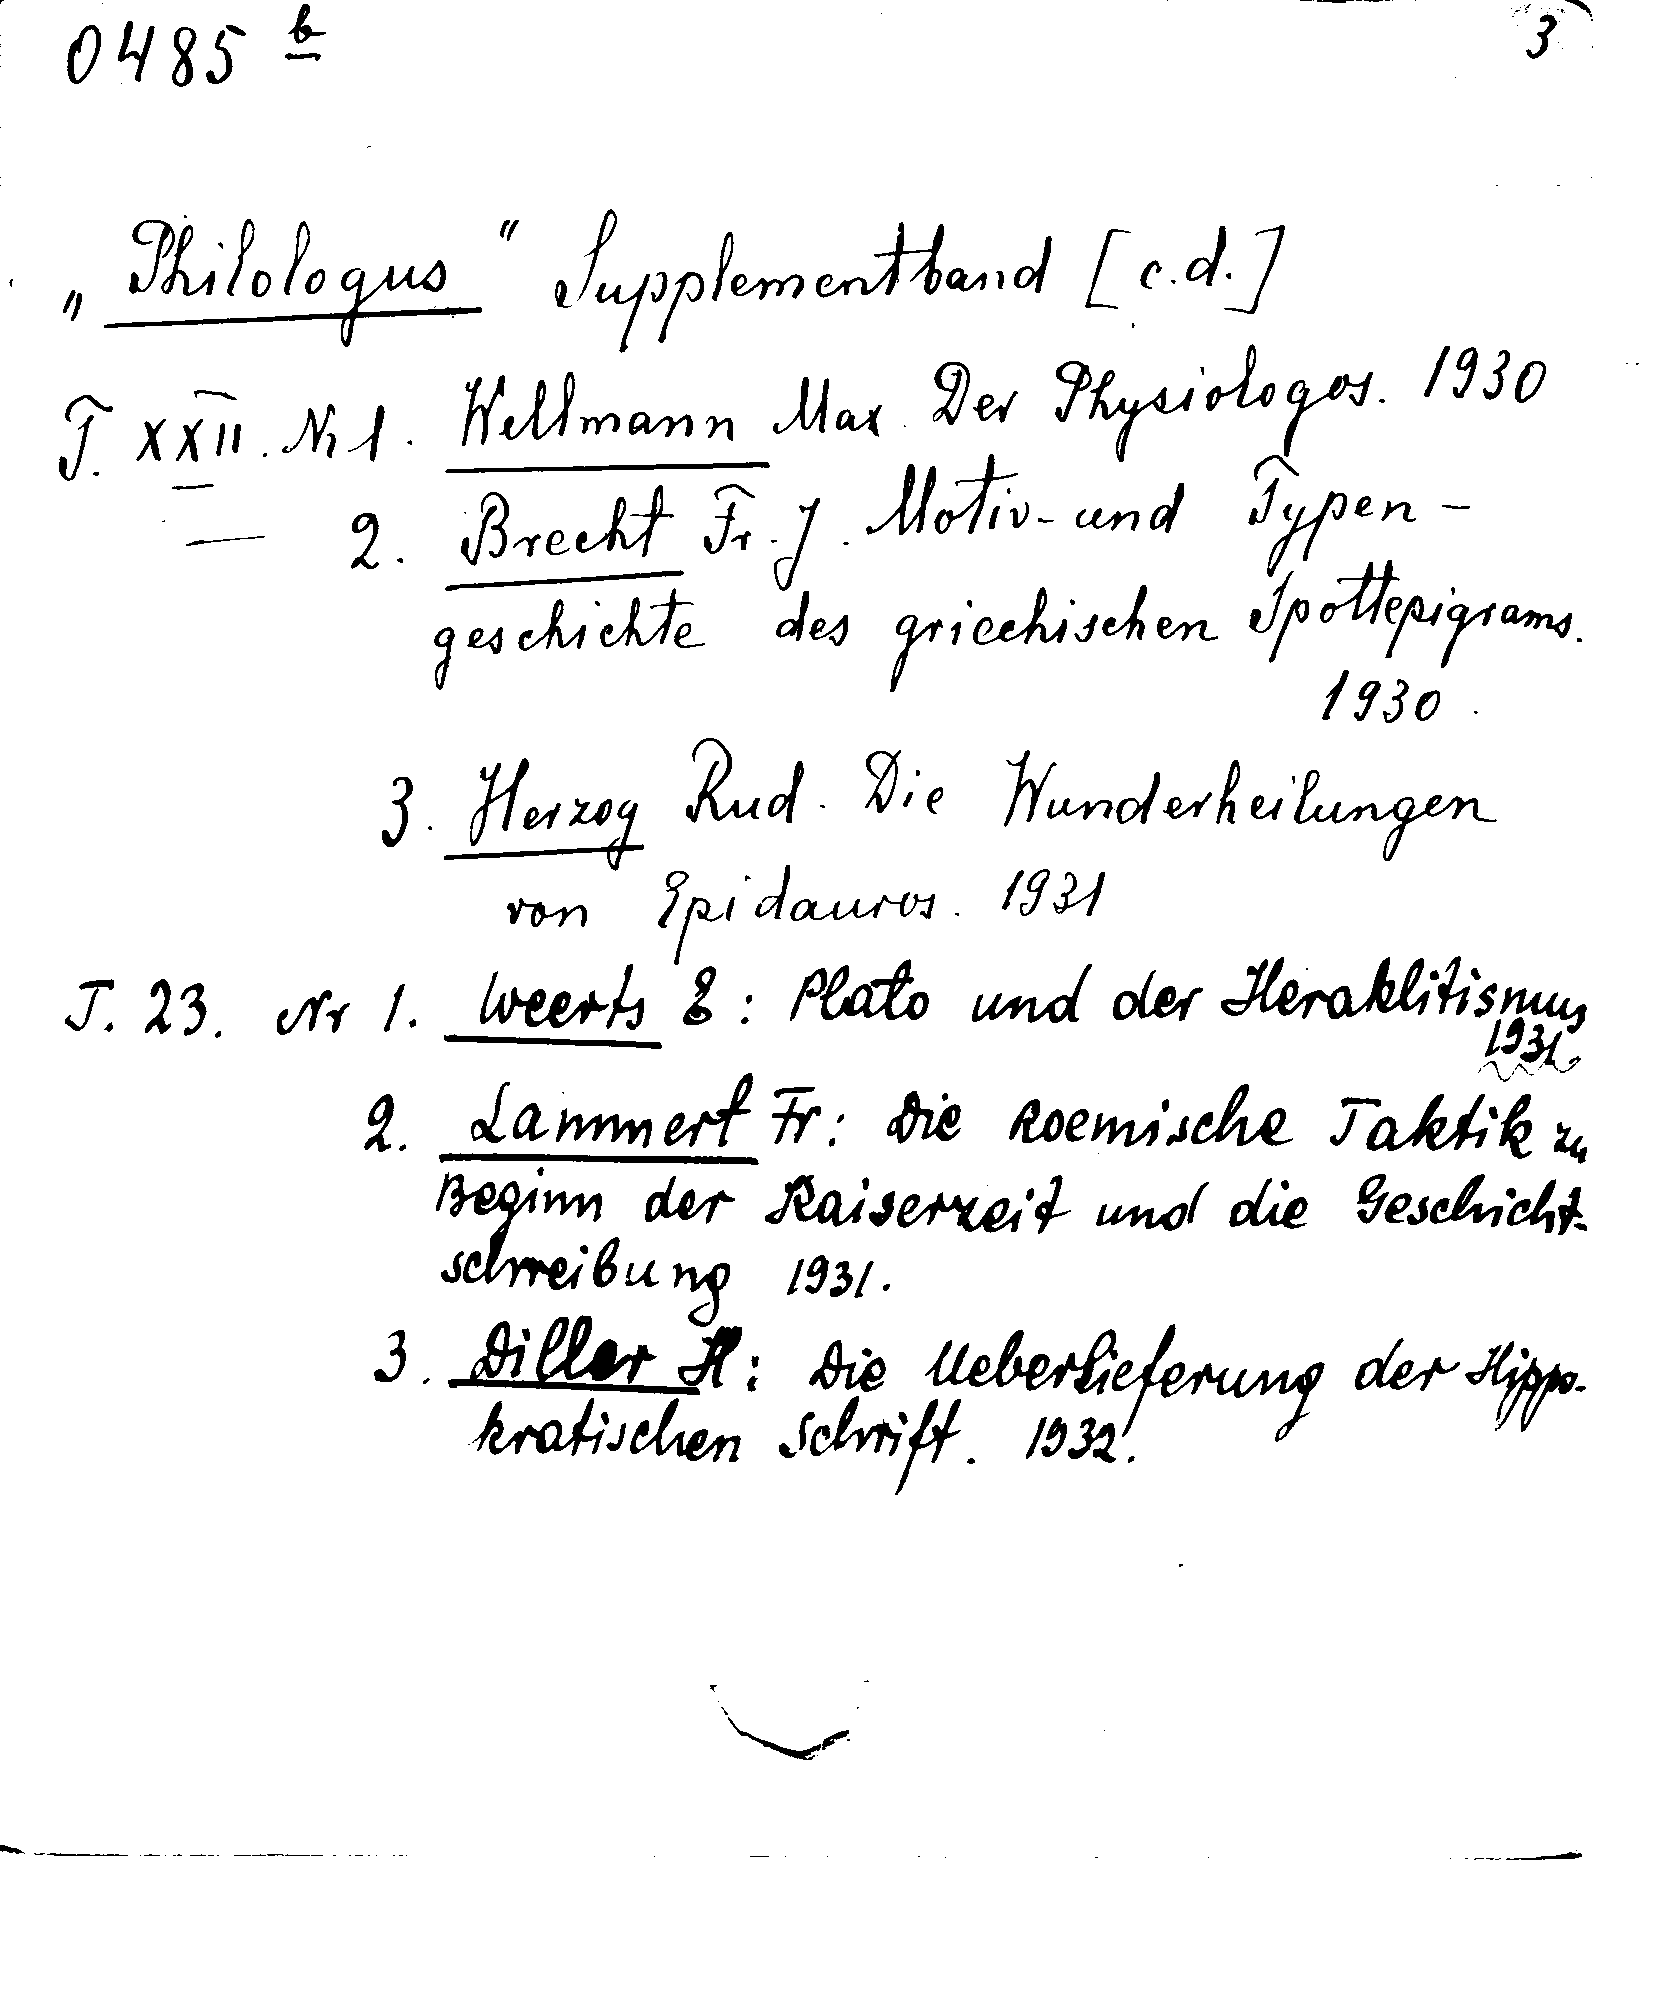 0485 b 3
„Philologus" Supplementband [c.d.]
T. XXII. Nr 1. Wellmann Max. Der Physiologos. 1930
— 2. Brecht Fr. J. Motiv- und Typen-
geschichte des griechischen Spottepigrams.
1930.
3. Herzog Rud. Die Wunderheilungen
von Epidauros. 1931
T. 23. Nr 1. Weerts E: Plato und der Heraklitismus
1931.
2. Lammert Fr: Die Roemische Taktik zu
Beginn der Kaiserzeit und die Geschicht-
schreibung 1931.
3. Diller H: Die Ueberlieferung der Hippo-
kratischen Schrift. 1932.